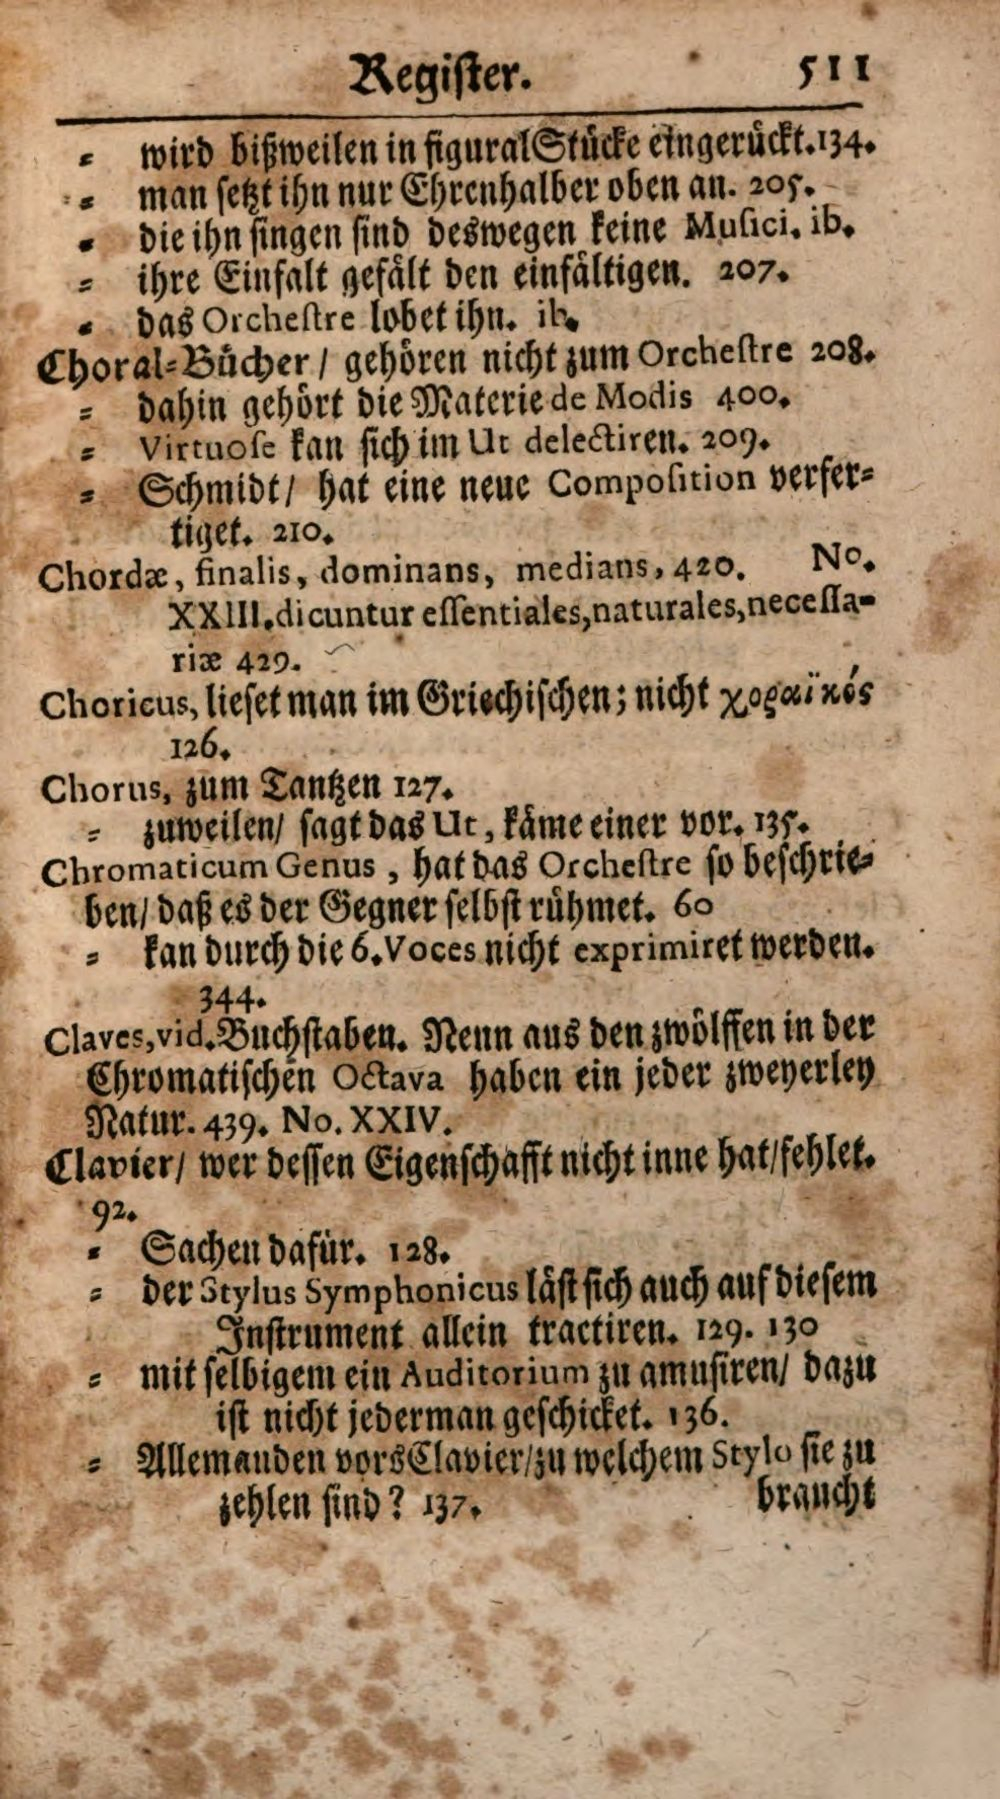 Register. 511
⸗ wird bißweilen in figural Stücke eingerückt. 134.
⸗ man setzt ihn nur Ehrenhalber oben an. 205.
⸗ die ihn singen sind deswegen keine Musici. ib.
⸗ ihre Einfalt gefält den einfältigen. 207.
⸗ das Orchestre lobet ihn. ib.
Choral⸗Bücher / gehören nicht zum Orchestre 208.
⸗ dahin gehört die Materie de Modis 400.
⸗ Virtuose kan sich im Ut delectiren. 209.
⸗ Schmidt / hat eine neue Composition verfer⸗
tiget. 210.
Chordæ, finalis, dominans, medians, 420. No.
XXIII. dicuntur essentiales, naturales, necessa-
riæ 429.
Choricus, lieset man im Griechischen; nicht χοραϊκός
126.
Chorus, zum Tantzen 127.
⸗ zuweilen / sagt das Ut, käme einer vor. 135.
Chromaticum Genus, hat das Orchestre so beschrie⸗
ben / daß es der Gegner selbst rühmet. 60
⸗ kan durch die 6. Voces nicht exprimiret werden.
344.
Claves, vid. Buchstaben. Neun aus den zwölffen in der
Chromatischen Octava haben ein jeder zweyerley
Natur. 439. No. XXIV.
Clavier / wer dessen Eigenschafft nicht inne hat / fehlet.
92.
⸗ Sachen dafür. 128.
⸗ der Stylus Symphonicus läst sich auch auf diesem
Instrument allein tractiren. 129. 130
⸗ mit selbigem ein Auditorium zu amusiren / dazu
ist nicht jederman geschicket. 136.
⸗ Allemanden vors Clavier / zu welchem Stylo sie zu
zehlen sind? 137. braucht